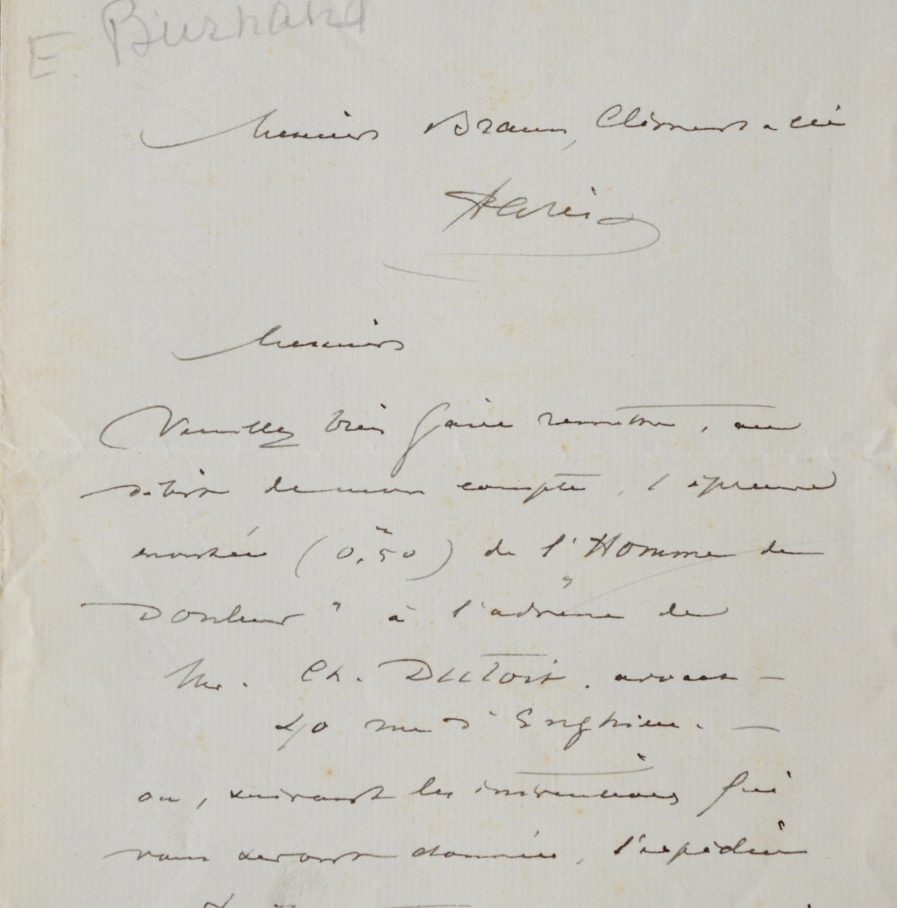 E. Burnand
Messieurs Braun, Clément & Cie
Paris
Messieurs
Veuillez bien faire remettre, au
débit de mon compte, l'épreuve
montée (0,50) de l'"Homme de
Douleur" à l'adresse de
Mr. Ch. DuToit. avocat —
40 rue d'Enghien. —
ou, suivant les instructions qui
vous seront données, l'expédier